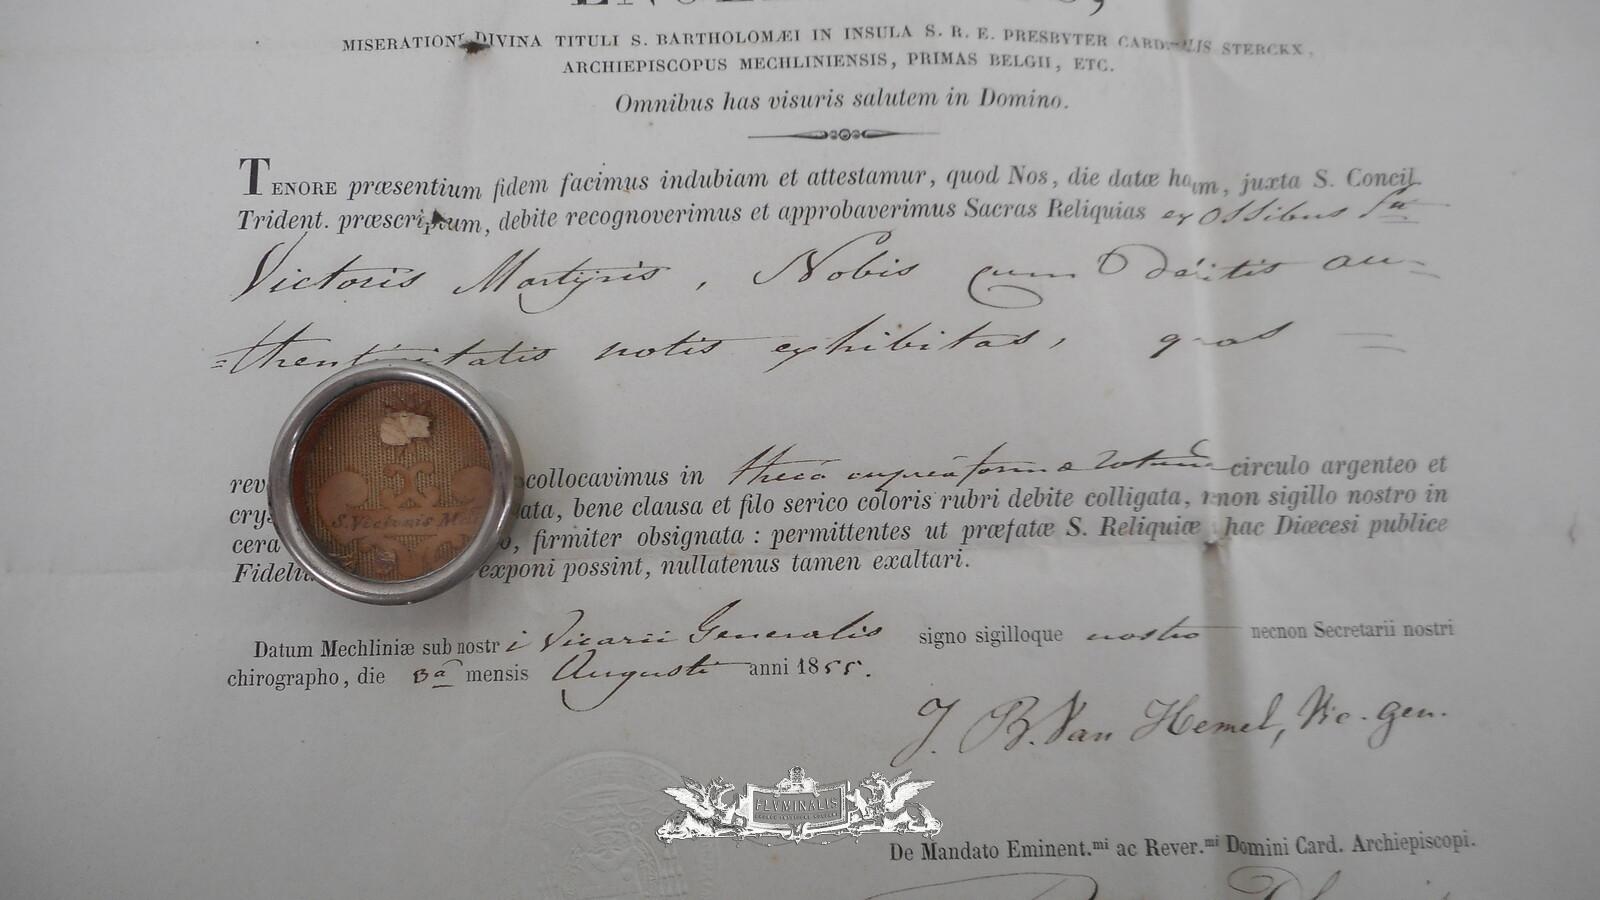 MISERATIONE DIVINA TITULI S. BARTHOLOMÆI IN INSULA S. R. E. PRESBYTER CARDINALIS STERCKX,
ARCHIEPISCOPUS MECHLINIENSIS, PRIMAS BELGII, ETC.
Omnibus has visuris salutem in Domino.
TENORE præsentium fidem facimus indubiam et attestamur, quod Nos, die datæ harum, juxta S. Concil.
Trident. præscriptum, debite recognoverimus et approbaverimus Sacras Reliquias ex Ossibus Sti
Victoris Martyris, Nobis cum Debitis au-
=thenticitatis notis exhibitas, quas =
rev collocavimus in theca cuprea formæ rotundæ circulo argenteo et
crys ata, bene clausa et filo serico coloris rubri debite colligata, non sigillo nostro in
cera o, firmiter obsignata : permittentes ut præfatæ S. Reliquiæ hac Diœcesi publice
Fideliu exponi possint, nullatenus tamen exaltari.
S. Victoris Mar
Datum Mechliniæ sub nostri Vicarii Generalis signo sigilloque nostro necnon Secretarii nostri
chirographo, die 3a mensis Augusti anni 1855.
J. B. Van Hemel, Vic-gen.
FLVMINALIS
De Mandato Eminent.mi ac Rever.mi Domini Card. Archiepiscopi.